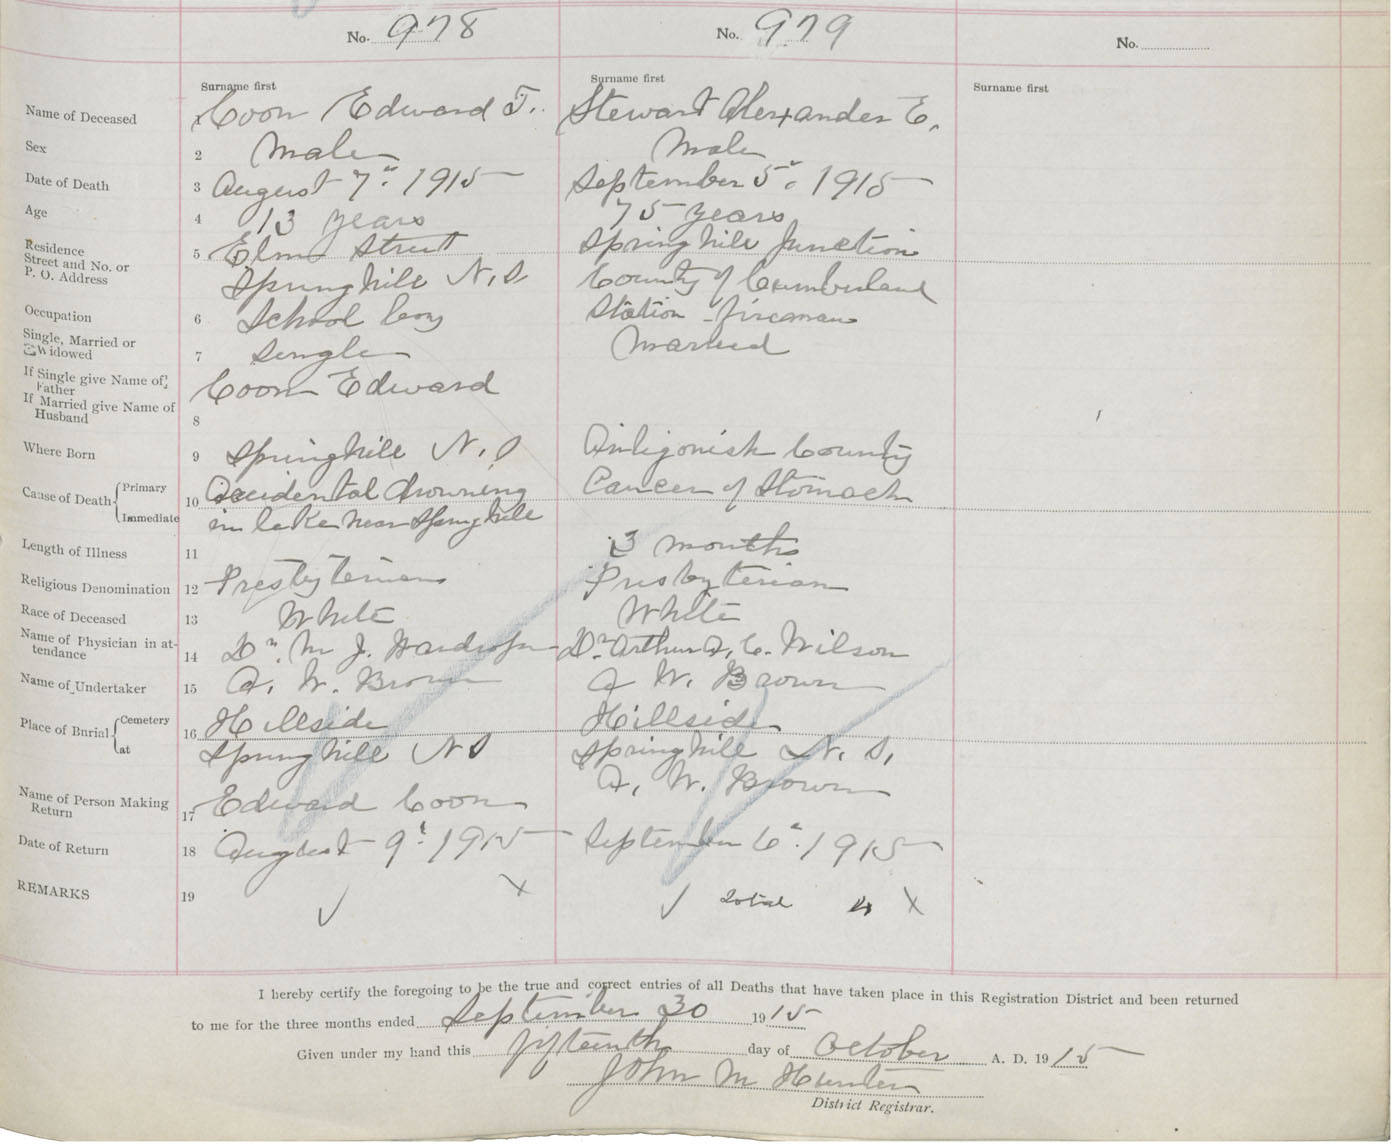 No. 978 No. 979 No.
Surname first Surname first Surname first
Name of Deceased 1 Coon Edward T. Stewart Alexander E.
Sex 2 Male Male
Date of Death 3 August 7" 1915 September 5" 1915
Age 4 13 years 75 years
Residence Street and No. or P. O. Address 5 Elm Street Springhill Junction
Springhill N.S County of Cumberland
Occupation 6 School boy Station fireman
Single, Married or Widowed 7 Single Married
If Single give Name of Father Coon Edward
If Married give Name of Husband 8
Where Born 9 Springhill N.S Antigonish County
Cause of Death Primary 10 Accidental drowning Cancer of Stomach
Immediate in lake near Springhill
Length of Illness 11 3 months
Religious Denomination 12 Presbyterian Presbyterian
Race of Deceased 13 White White
Name of Physician in attendance 14 Dr. M J. Dr. Arthur C. Wilson
Name of Undertaker 15 A. W. Brown A W. Brown
Place of Burial Cemetery 16 Hillside Hillside
at Springhill NS Springhill N. S.
Name of Person Making Return 17 Edward Coon A. W. Brown
Date of Return 18 August 9" 1915 September 6" 1915
REMARKS 19 total 4
I hereby certify the foregoing to be the true and correct entries of all Deaths that have taken place in this Registration District and been returned
to me for the three months ended September 30 1915
Given under my hand this fifteenth day of October A. D. 1915
John M Hunter
District Registrar.